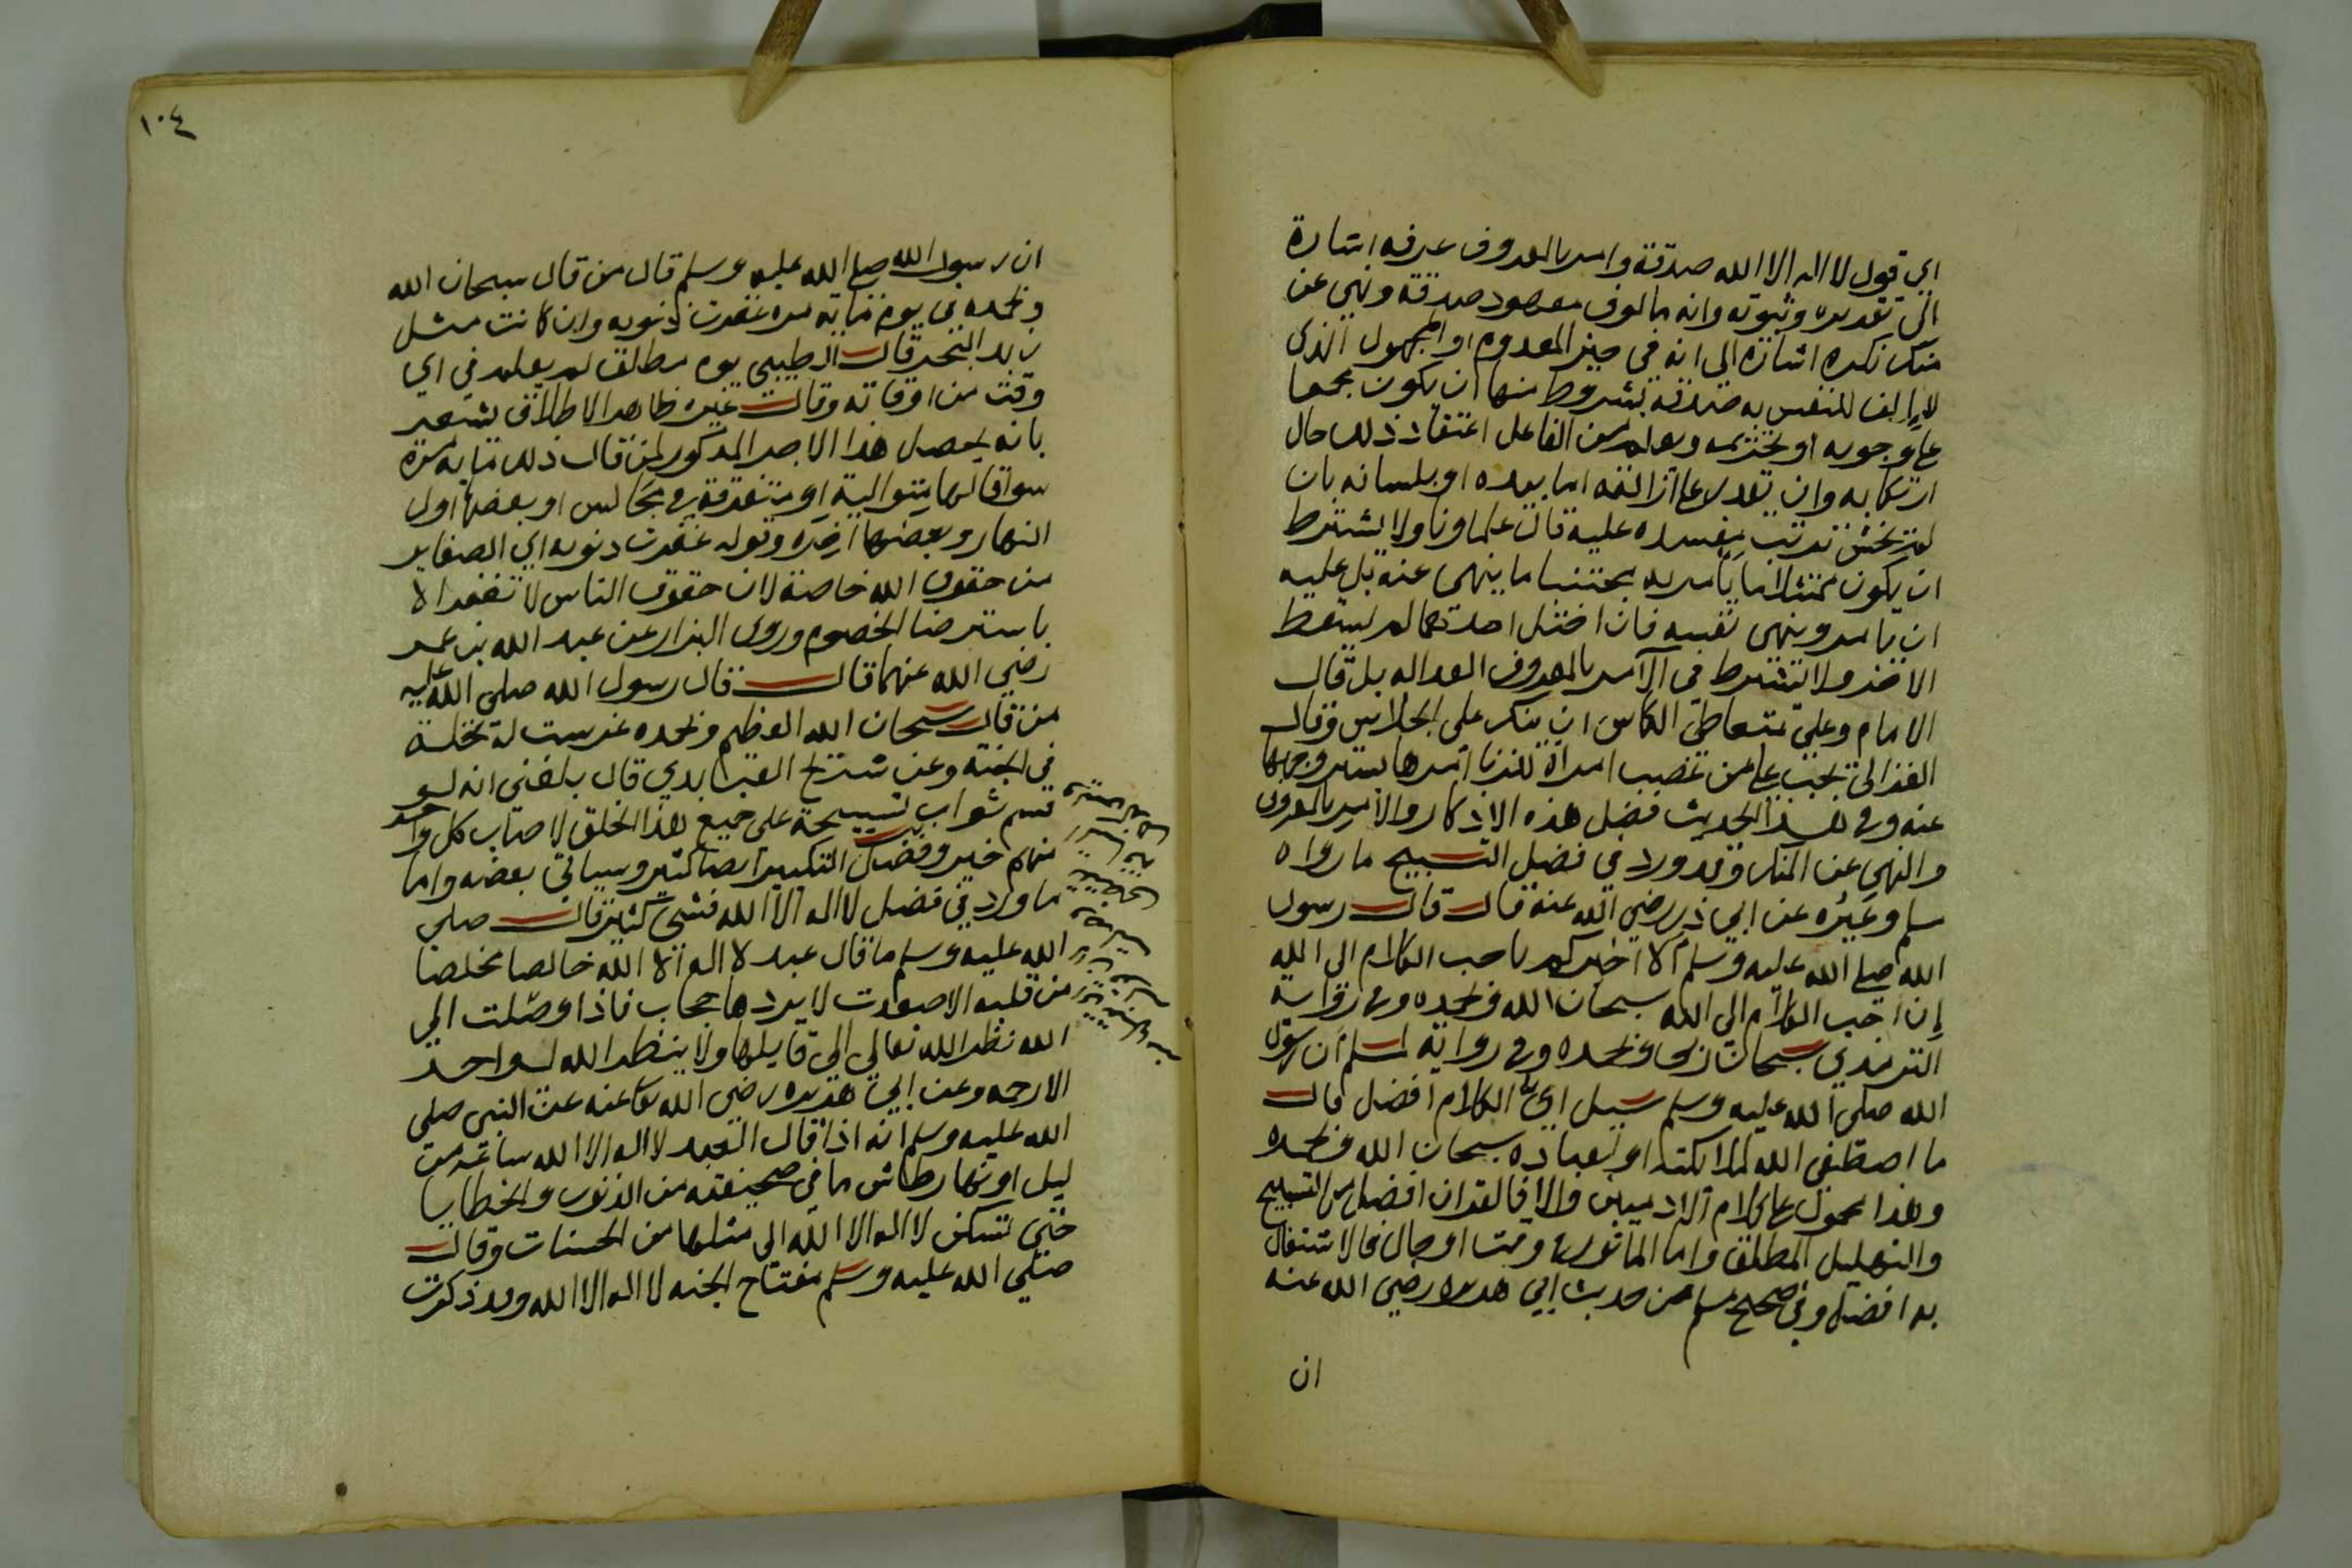 اي قول لا اله الا الله صدقة وامر بالمعروف عرفه اشارة
الى تقديره وثبوته وانه مالوف معهود صدقة ونهي عن
منكر نكره اشارة الى انه في حيز المعدوم او المجهول الذي
لا الف للنفس به صدقة بشروط منها ان يكون مجمعا
على وجوبه او تحريمه ويعلم من الفاعل اعتقاد ذلك حال
ارتكابه وان يقدر على ازالته اما بيده او بلسانه بان
لم يخش ترتب مفسده عليه قال علماونا ولا يشترط
ان يكون ممتثلا ما يامر به مجتنبا ما ينهى عنه بل عليه
ان يامر وينهى نفسه فان اختل احدهما لم يسقط
الاخر ولا تشترط في الامر بالمعروف العداله بل قال
الامام وعلى متعاطي الكاس ان ينكر على الجلاس وقال
الغزالي يجب على من غصب امراة للزنا امرها بستر وجهها
عنه وفي هذا الحديث فضل هذه الاذكار والامر بالمعروف
والنهي عن المنكر وقد ورد في فضل التسبيح ما رواه
مسلم وغيره عن ابي ذر رضي الله عنه قال قال رسول
الله صلى الله عليه وسلم الا اخبركم باحب الكلام الى الله
إن احب الكلام الى الله سبحان الله وبحمده وفي رواية
الترمذي سبحان ربي وبحمده وفي رواية لمسلم ان رسول
الله صلى الله عليه وسلم سيل اي الكلام افضل قال
ما اصطفى الله لملائكته او لعباده سبحان الله وبحمده
وهذا محمول على كلام الادميين والا فالقران افضل من التسبيح
والتهليل المطلق واما الماثور في وقت او حال فالاشتغال
به افضل وفي صحيح مسلم من حديث ابي هريره رضي الله عنه
ان
١٠٤
ان رسول الله صلى الله عليه وسلم قال من قال سبحان الله
وبحمده في يوم ماية مره غفرت ذنوبه وان كانت مثل
زبد البحر قال الطيبي يوم مطلق لم يعلم في اي
وقت من اوقاته وقال غيره ظاهر الاطلاق يشعر
بانه يحصل هذا الاجر المذكور لمن قال ذلك ماية مرة
سوا قالها متوالية او متفرقة في مجالس او بعضها اول
النهار وبعضها اخره وقوله غفرت ذنوبه اي الصغاير
من حقوق الله خاصة لان حقوق الناس لا تغفر الا
باسترضا الخصوم وروى البزار عن عبد الله بن عمر
رضي الله عنهما قال قال رسول الله صلى الله عليه
من قال سبحان الله العظيم وبحمده غرست له نخلة
في الجنة وعن العابدي قال بلغني انه لو
قسم ثواب تسبيحة على جميع هذا الخلق لاصاب كل واحد
منهم خير وفضل التكبير ايضا كثير وسياتي بعضه واما
ما ورد في فضل لا اله الا الله فشي كثير قال صلى
الله عليه وسلم ما قال عبد لا اله الا الله خالصا مخلصا
من قلبه الا صعدت لا يردها حجاب فاذا وصلت الى
الله نظر الله تعالى الى قايلها ولا ينظر الله لواحد
الا رحمه وعن ابي هريره رضي الله تعا عنه عن النبي صلى
الله عليه وسلم انه اذا قال العبد لا اله الا الله ساعة من
ليل او نهار طاش ما في صحيفته من الذنوب والخطايا
حتى تسكن لا اله الا الله الى مثلها من الحسنات وقال
صلى الله عليه وسلم مفتاح الجنه لا اله الا الله وقد ذكرت